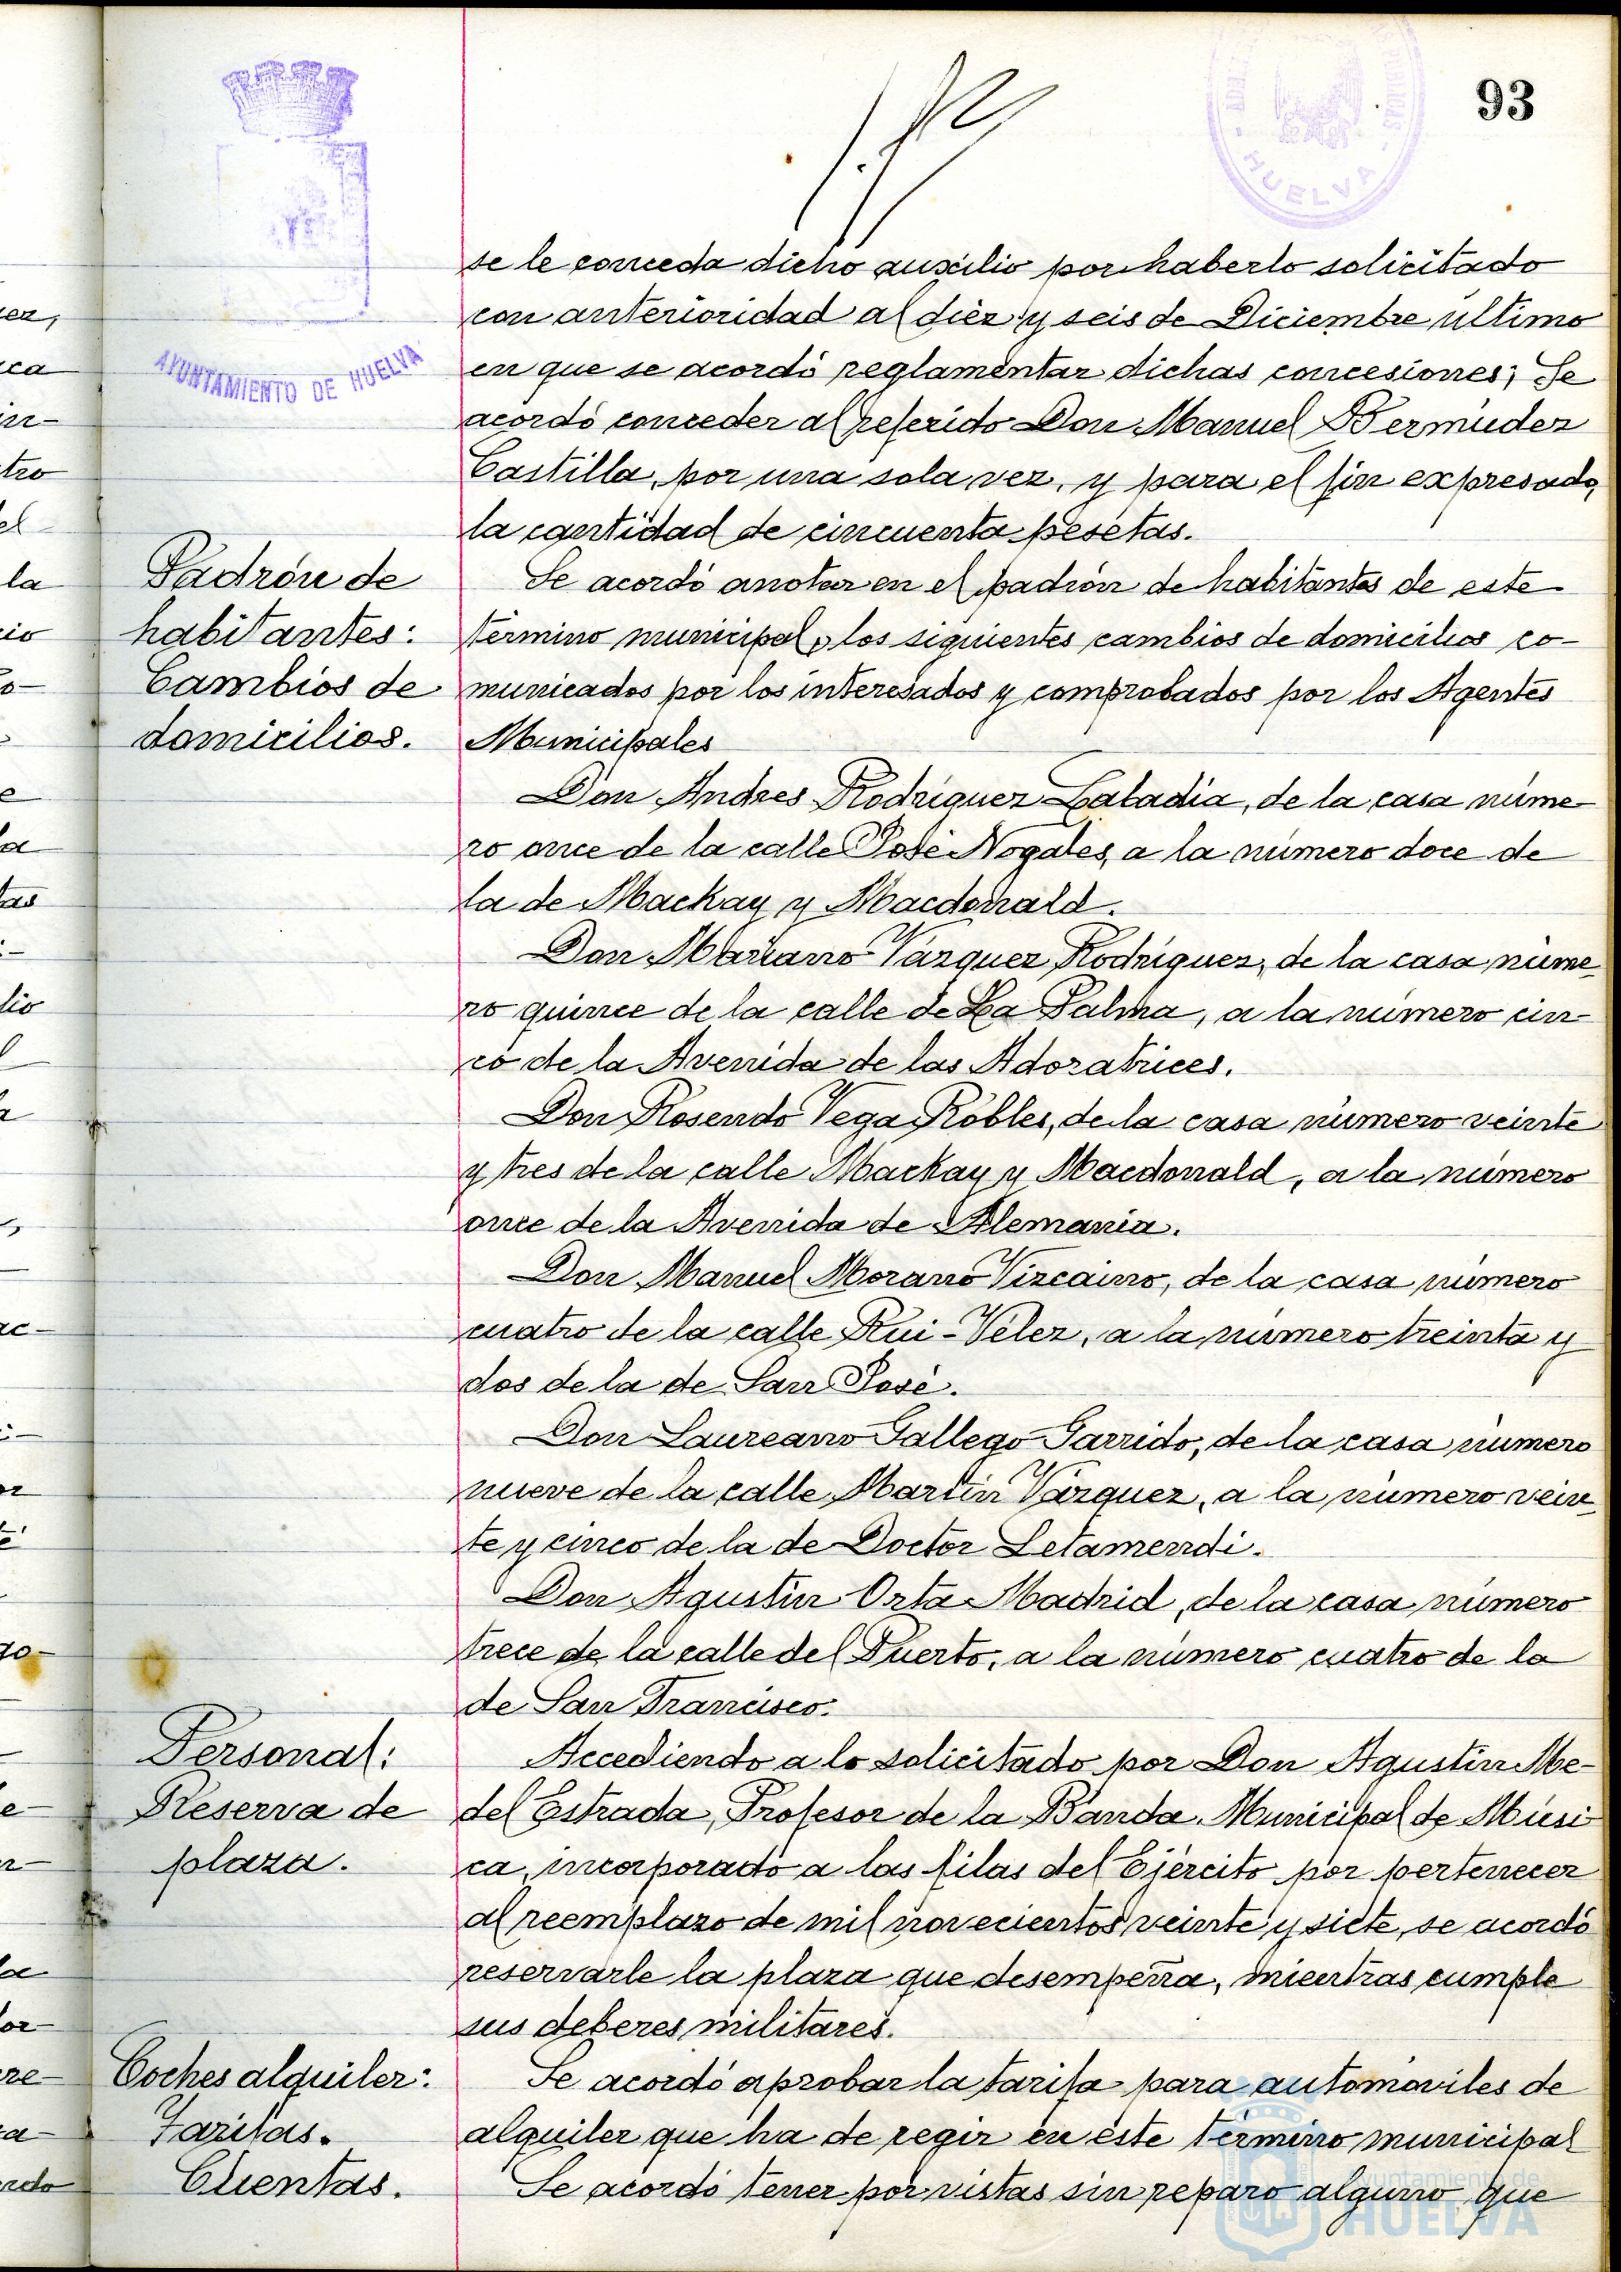 93
HUELVA
AYUNTAMIENTO DE HUELVA
se le conceda dicho auxilio por haberlo solicitado
con anterioridad al diez y seis de Diciembre último
en que se acordó reglamentar dichas concesiones; Se
acordó conceder al referido Don Manuel Bermúdez
Castilla, por una sola vez, y para el fin expresado,
la cantidad de cincuenta pesetas.
Padrón de
habitantes:
Cambios de
domicilios.
Se acordó anotar en el padrón de habitantes de este
término municipal, los siguientes cambios de domicilios co-
municados por los interesados y comprobados por los Agentes
Municipales
Don Andres Rodríguez Labadía, de la casa núme-
ro once de la calle José Nogales, a la número doce de
la de Mackay y Macdonald.
Don Mariano Vázquez Rodríguez, de la casa núme-
ro quince de la calle de La Palma, a la número cin-
co de la Avenida de las Adoratrices.
Don Rosendo Vega Robles, de la casa número veinte
y tres de la calle Mackay y Macdonald, a la número
once de la Avenida de Alemania.
Don Manuel Morano Vizcaino, de la casa número
cuatro de la calle Rui-Vélez, a la número treinta y
dos de la de San José.
Don Laureano Gallego Garrido, de la casa número
nueve de la calle Martín Vázquez, a la número vein-
te y cinco de la de Doctor Letamendi.
Don Agustín Orta Madrid, de la casa número
trece de la calle del Puerto, a la número cuatro de la
de San Francisco.
Personal:
Reserva de
plaza.
Accediendo a lo solicitado por Don Agustín Me-
del Estrada, Profesor de la Banda Municipal de Músi-
ca, incorporado a las filas del Ejército por pertenecer
al reemplazo de mil novecientos veinte y siete, se acordó
reservarle la plaza que desempeña, mientras cumple
sus deberes militares.
Coches alquiler:
Tarifas.
Se acordó aprobar la tarifa para automóviles de
alquiler que ha de regir en este término municipal
Cuentas.
Se acordó tener por vistas sin reparo alguno que
Ayuntamiento de
HUELVA